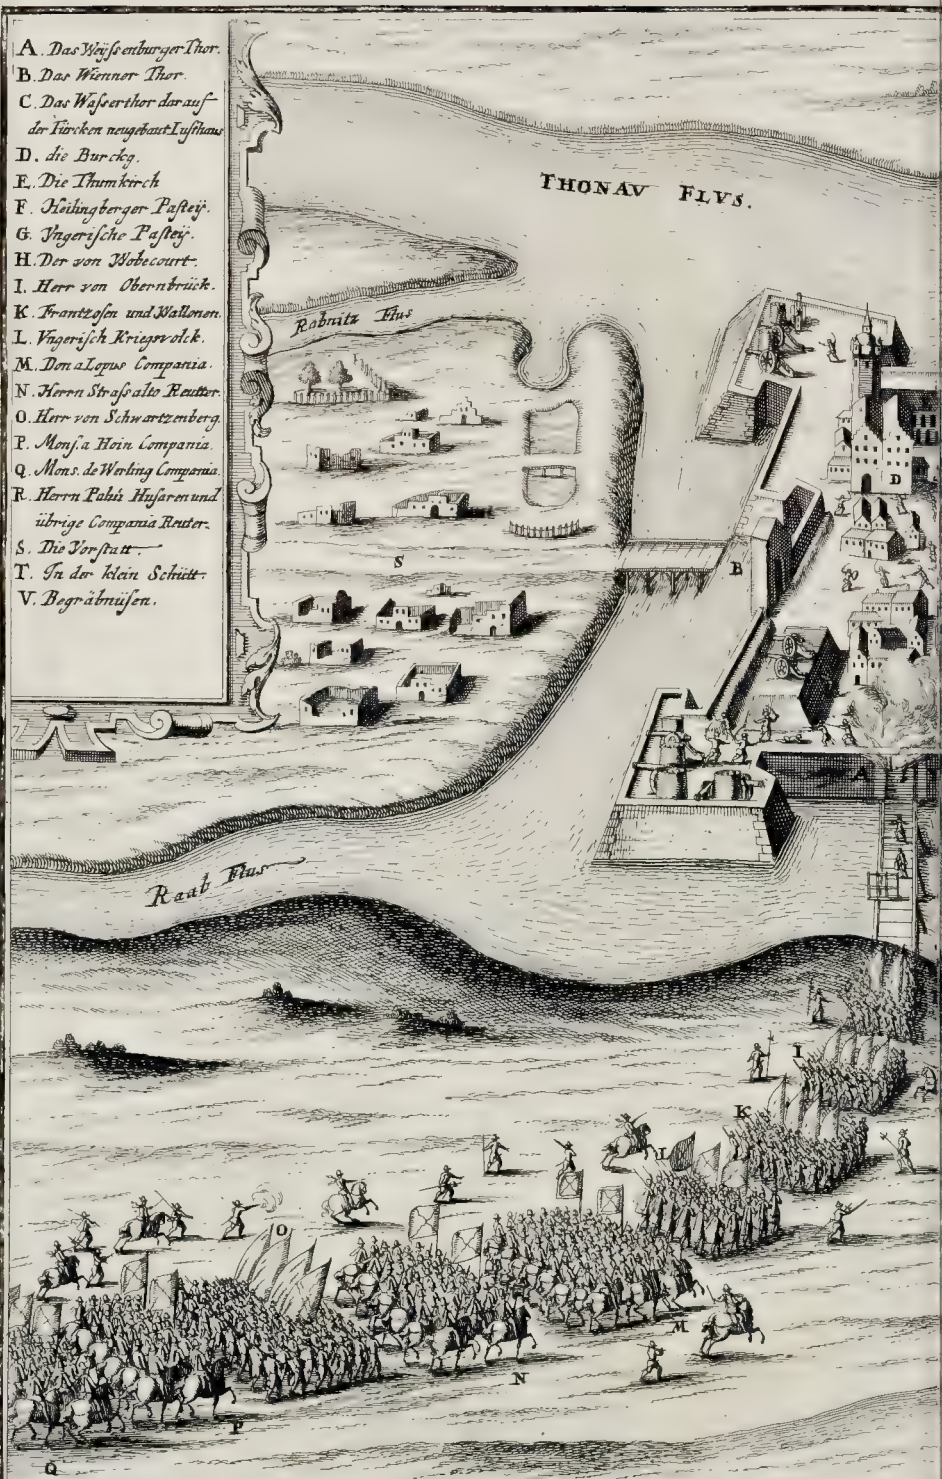 A. Das Weyssenburger Thor.
B. Das Wienner Thor.
C. Das Wasserthor darauf
der Türcken neugebaut Lusthaus
D. die Burckg.
E. Die Thumkirch
F. Heilingberger Pasteÿ.
G. Vngerische Pasteÿ.
H. Der von Wobecourt.
I. Herr von Obernbrück.
K. Frantzosen und Wallonen.
L. Vngerisch Kriegsvolck.
M. Don a Lopus Compania.
N. Herrn Strassalto Reutter.
O. Herr von Schwartzenberg.
P. Mons. a Hoin Compania.
Q. Mons. de Werting Compania.
R. Herrn Palfi Husaren und
übrige Compania Reuter.
S. Die Vorstatt.
T. In der klein Schütt.
V. Begräbnüsen.
THONAV FLVS.
Rabnitz Flus
D
S
B
A
Raab Flus
I
K
L
O
M
N
P
Q